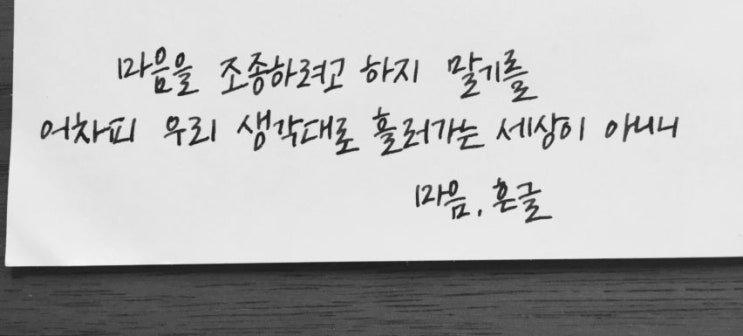 마음을 조종하려고 하지 말기를
어차피 우리 생각대로 흘러가는 세상이 아니니
마음, 흔글